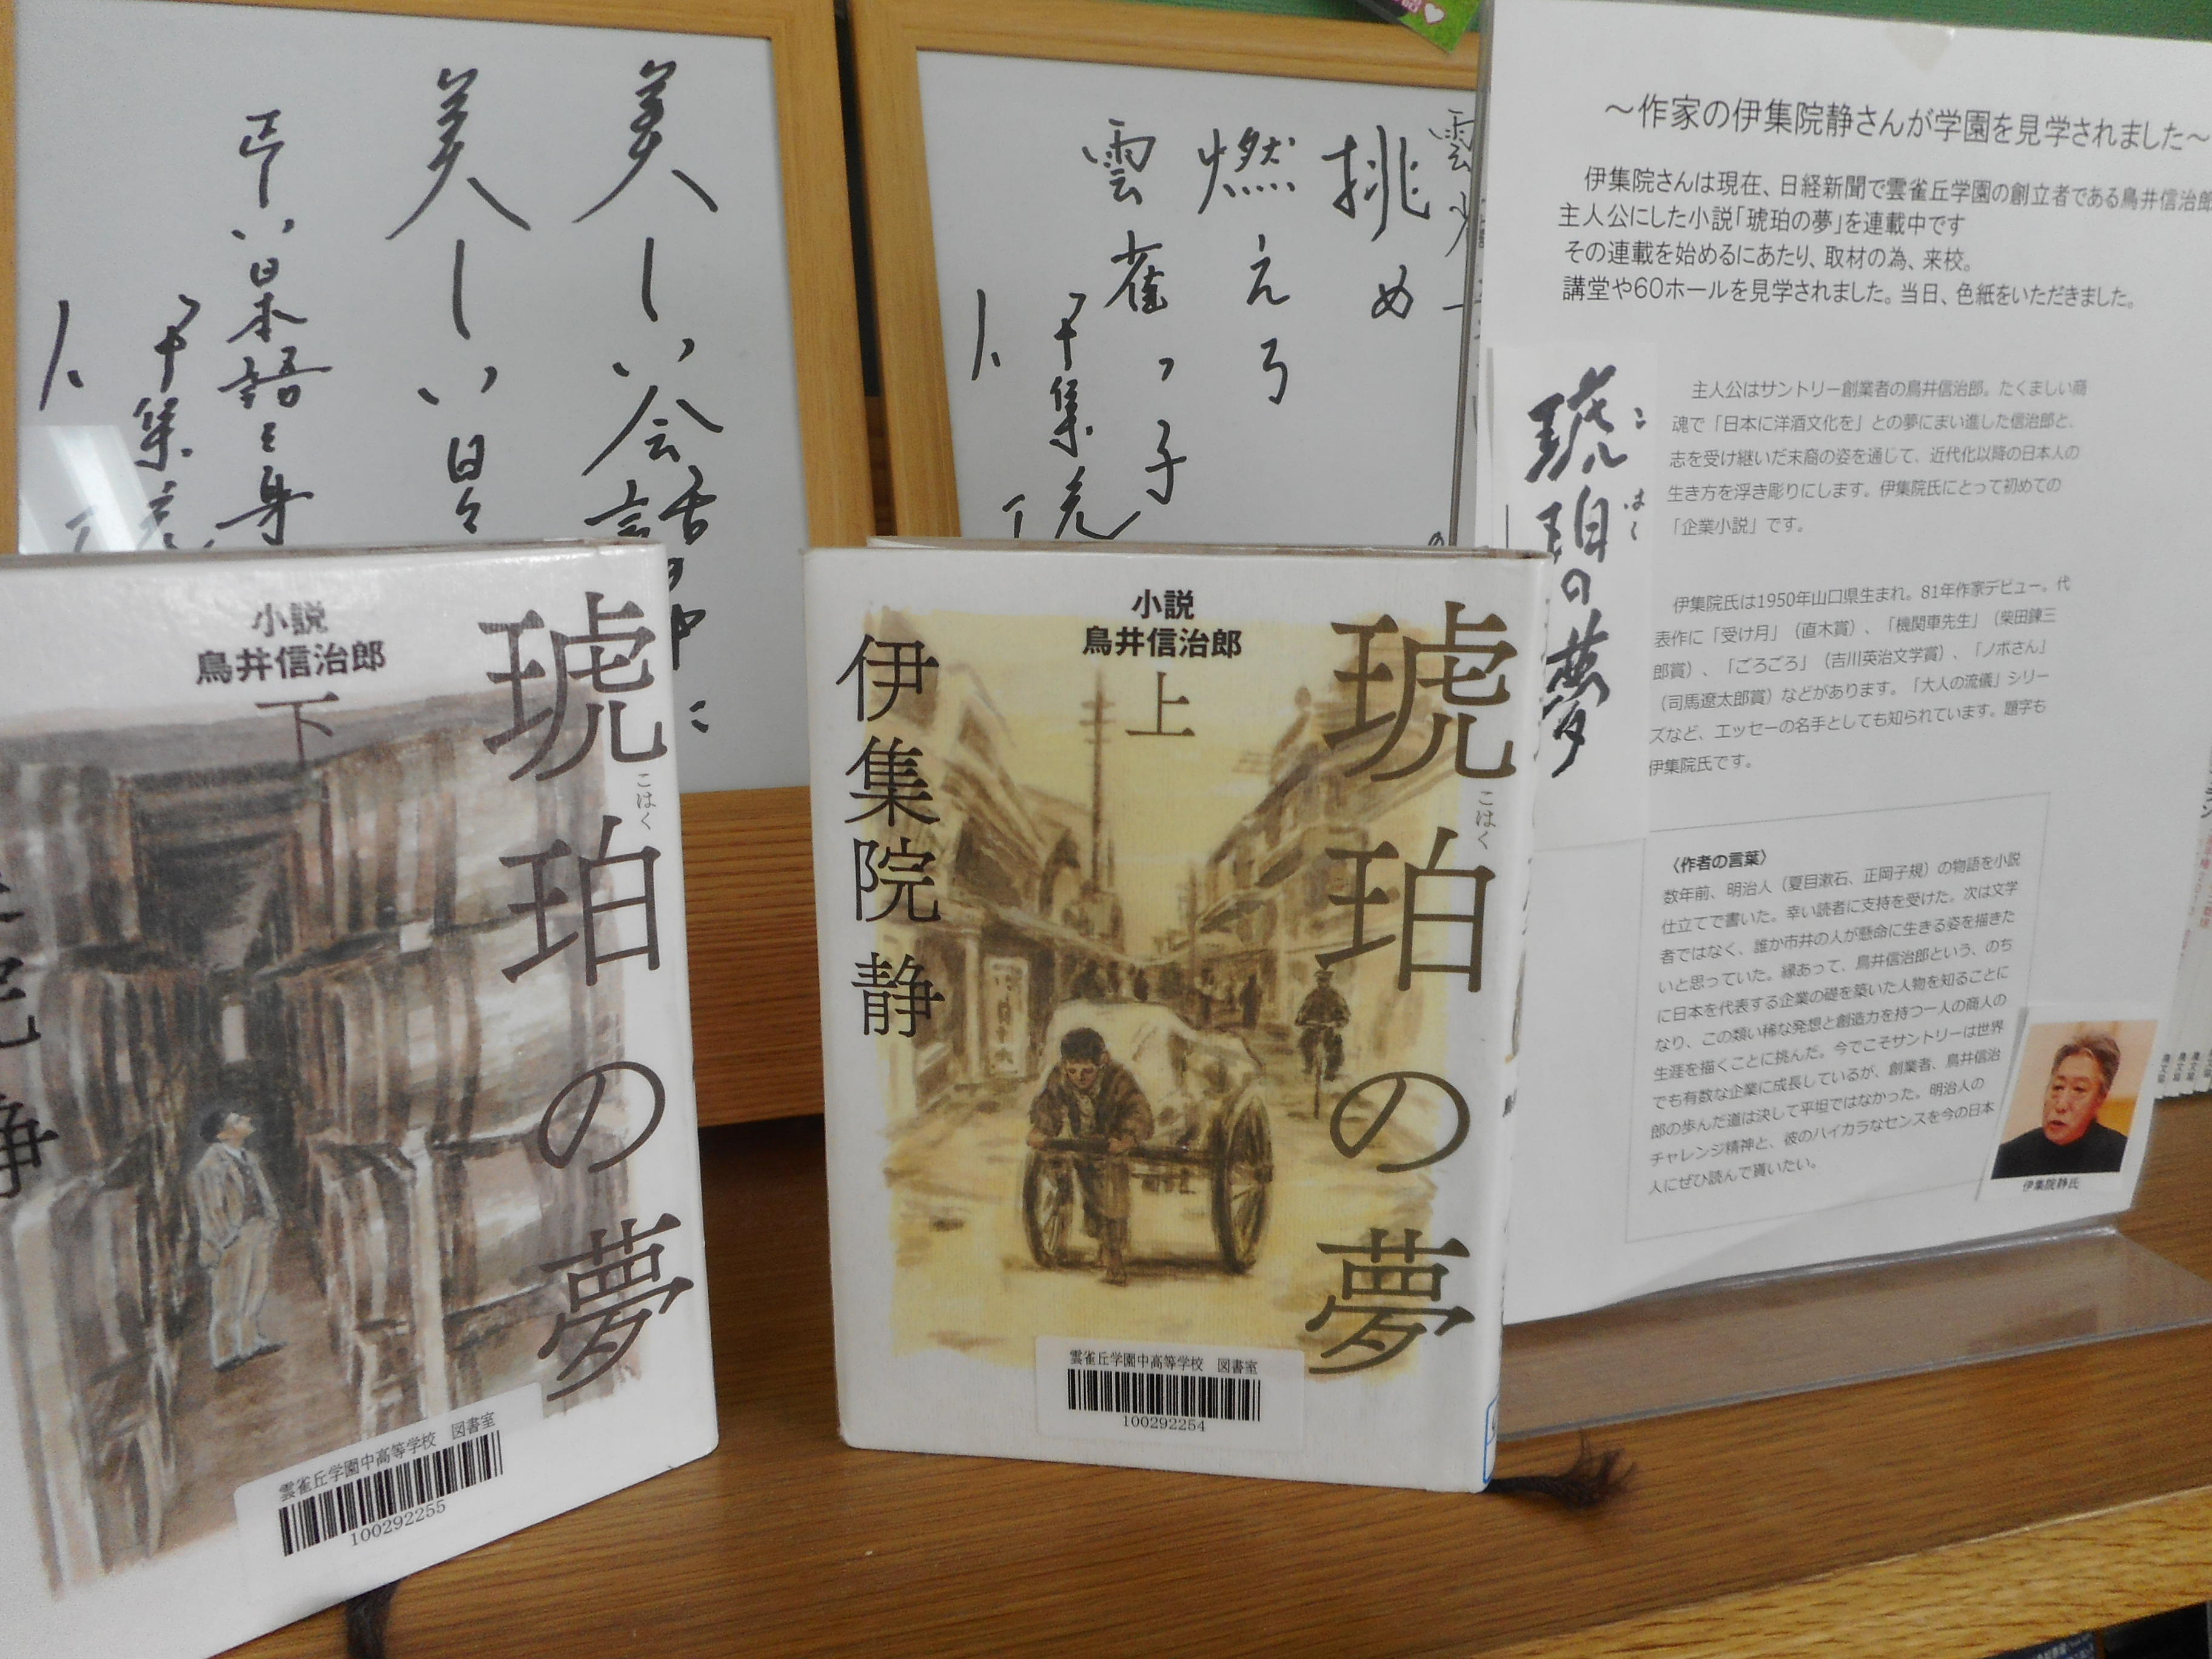 美しい会話の中に
美しい日々
正しい日本語を身
伊集院
挑め
燃えろ
雲雀っ子
伊集院
～作家の伊集院静さんが学園を見学されました～
伊集院さんは現在、日経新聞で雲雀丘学園の創立者である鳥井信治郎
主人公にした小説「琥珀の夢」を連載中です
その連載を始めるにあたり、取材の為、来校。
講堂や60ホールを見学されました。当日、色紙をいただきました。
琥珀の夢
こはく
主人公はサントリー創業者の鳥井信治郎。たくましい商
魂で「日本に洋酒文化を」との夢にまい進した信治郎と、
志を受け継いだ末裔の姿を通じて、近代化以降の日本人の
生き方を浮き彫りにします。伊集院氏にとって初めての
「企業小説」です。
伊集院氏は1950年山口県生まれ。81年作家デビュー。代
表作に「受け月」（直木賞）、「機関車先生」（柴田錬三
郎賞）、「ごろごろ」（吉川英治文学賞）、「ノボさん」
（司馬遼太郎賞）などがあります。「大人の流儀」シリー
ズなど、エッセーの名手としても知られています。題字も
伊集院氏です。
〈作者の言葉〉
数年前、明治人（夏目漱石、正岡子規）の物語を小説
仕立てで書いた。幸い読者に支持を受けた。次は文学
者ではなく、誰か市井の人が懸命に生きる姿を描きた
いと思っていた。縁あって、鳥井信治郎という、のち
に日本を代表する企業の礎を築いた人物を知ることに
なり、この類い稀な発想と創造力を持つ一人の商人の
生涯を描くことに挑んだ。今でこそサントリーは世界
でも有数な企業に成長しているが、創業者、鳥井信治
郎の歩んだ道は決して平坦ではなかった。明治人の
チャレンジ精神と、彼のハイカラなセンスを今の日本
人にぜひ読んで貰いたい。
伊集院静氏
小説
鳥井信治郎
下
琥珀の夢
こはく
雲雀丘学園中高等学校 図書室
100292255
小説
鳥井信治郎
上
琥珀の夢
こはく
伊集院 静
雲雀丘学園中高等学校 図書室
100292254